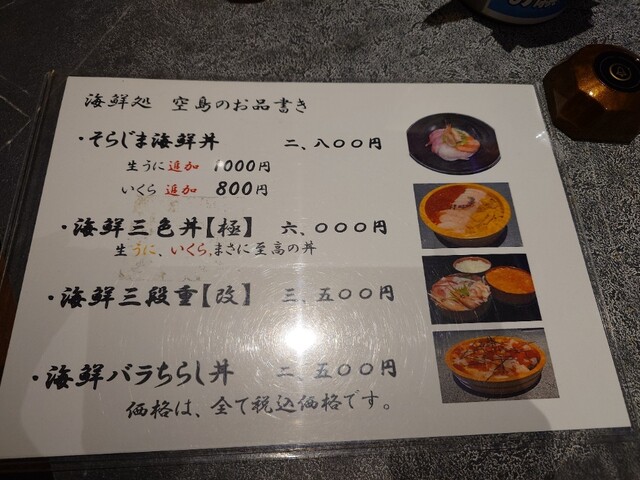 海鮮処 空島のお品書き
・そらじま海鮮丼 二、八〇〇円
生うに追加 1000円
いくら 追加 800円
・海鮮三色丼【極】 六、〇〇〇円
生うに、いくら、まさに至高の丼
・海鮮三段重【改】 三、五〇〇円
・海鮮バラちらし丼 二、五〇〇円
価格は、全て税込価格です。